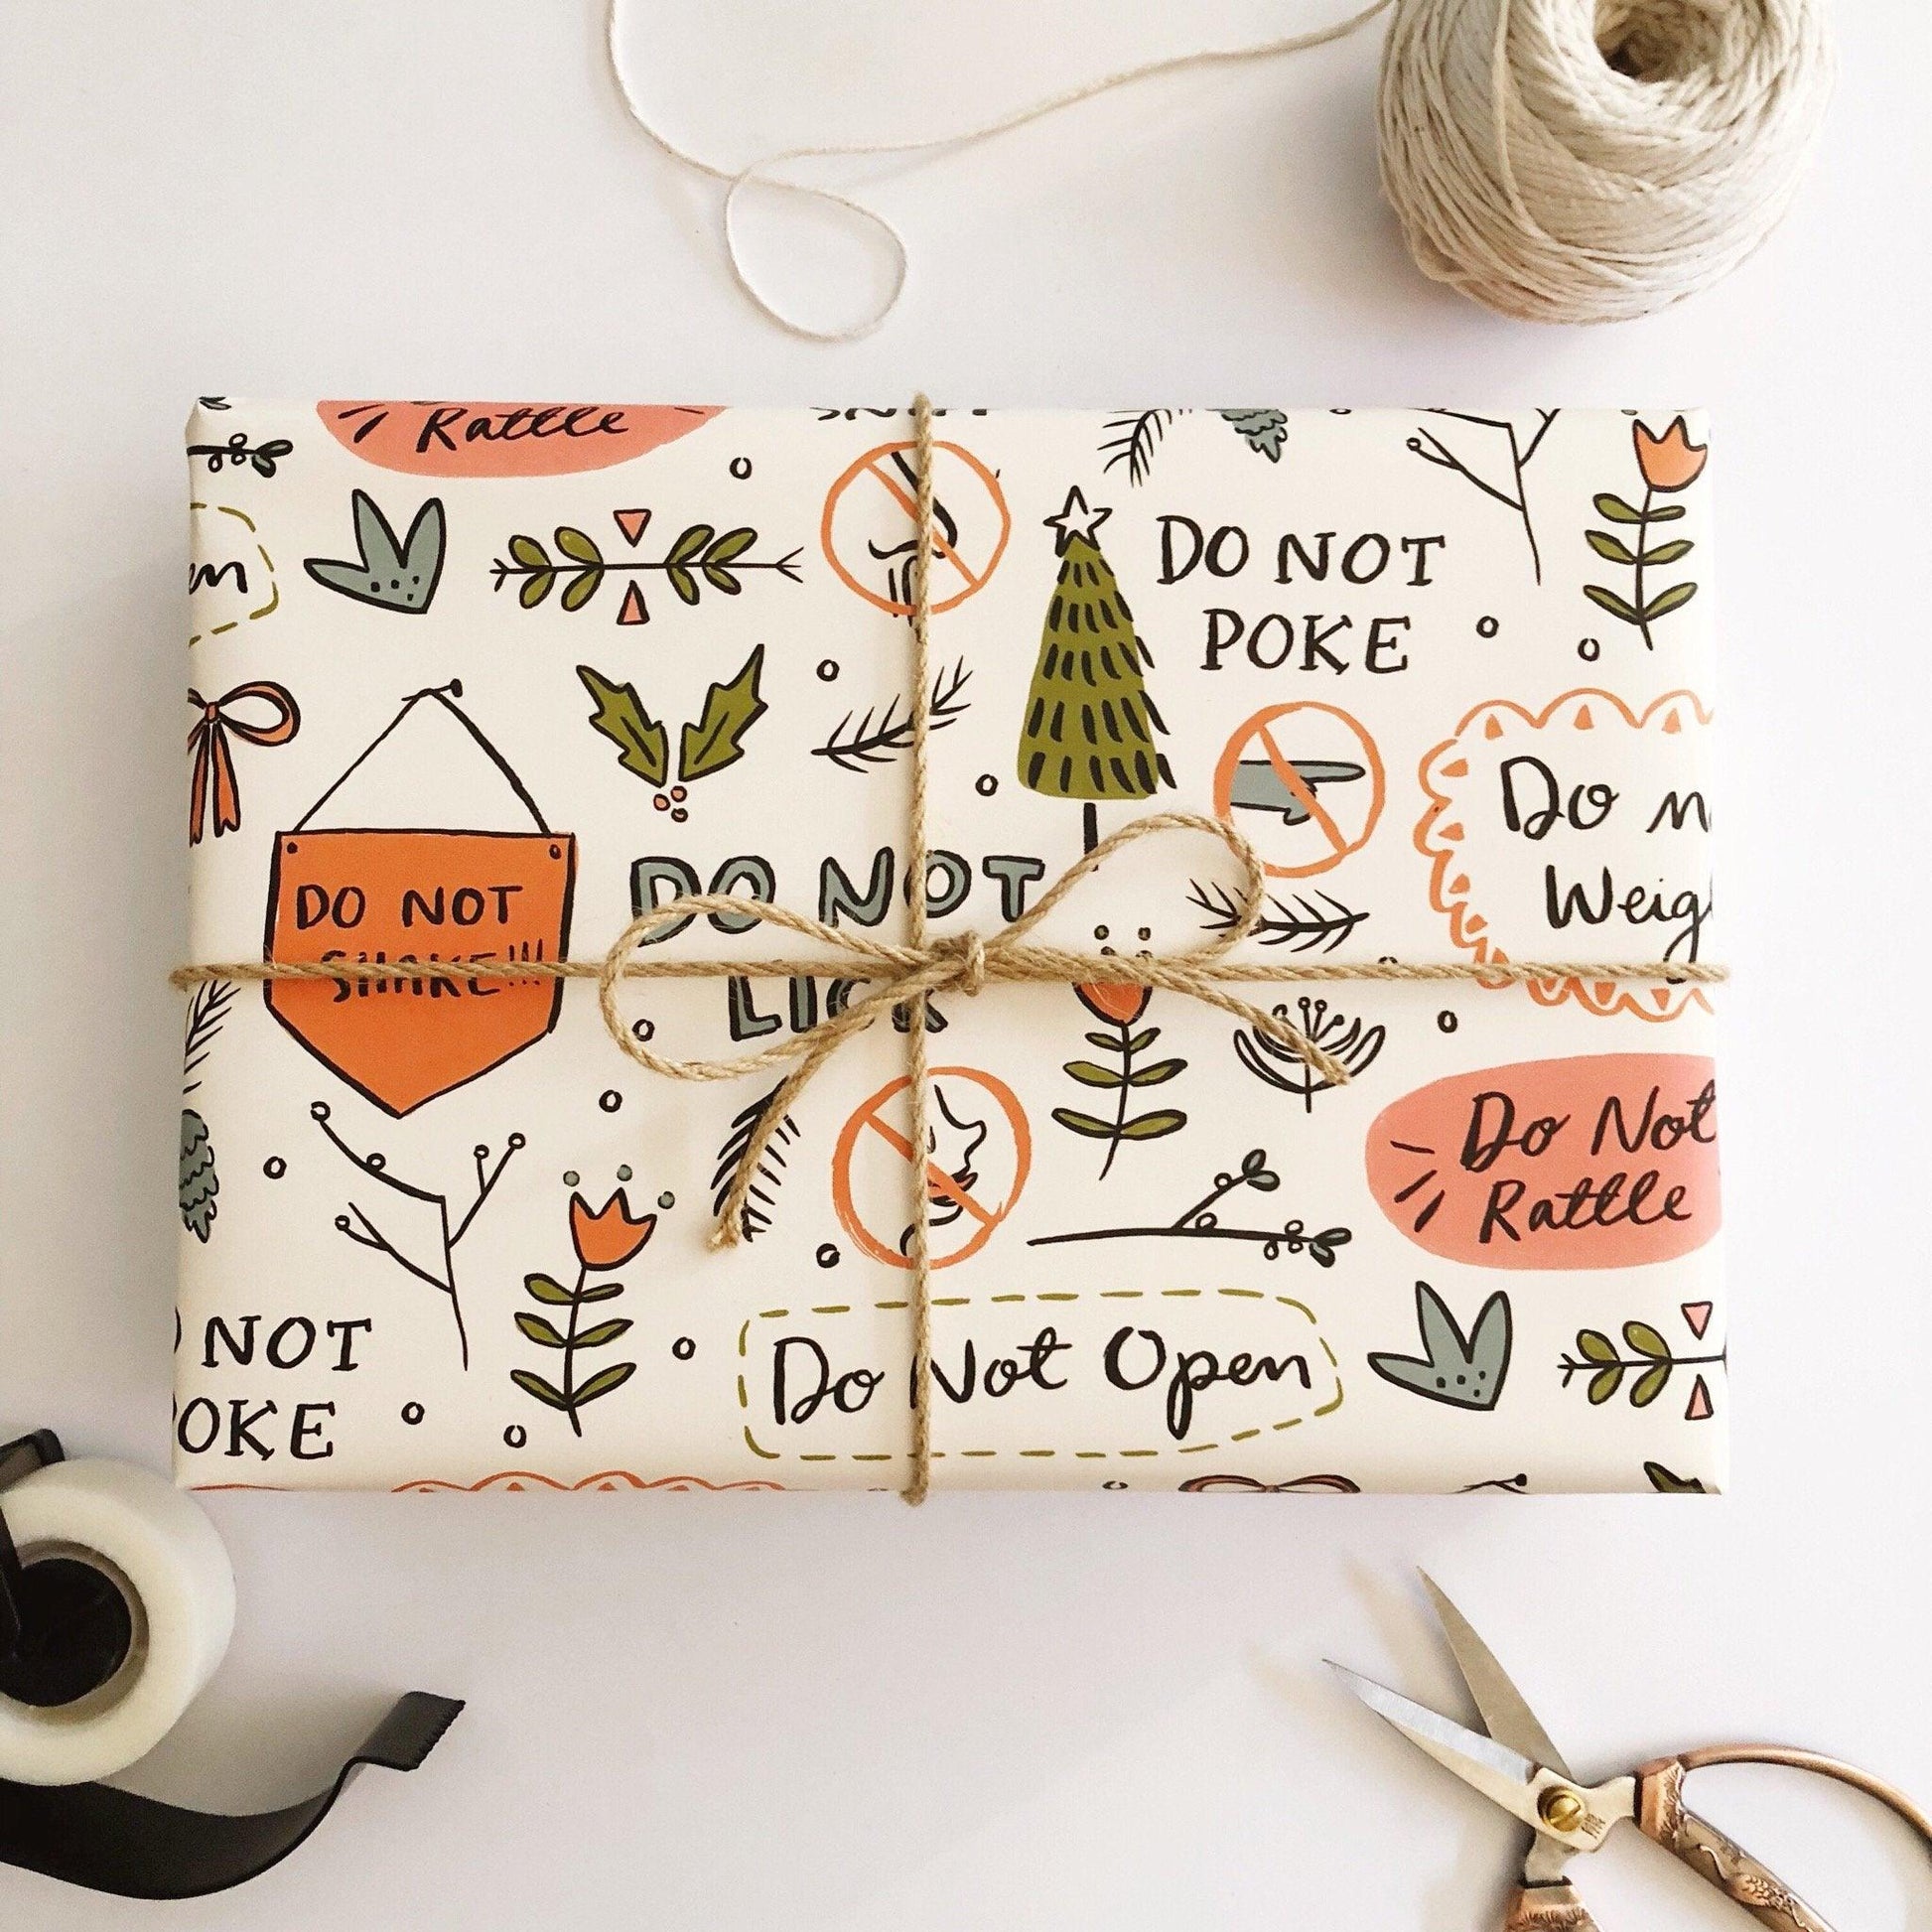 Rattle
en
DO NOT
POKE
DO NOT
SHAKE!!!
DO NOT
LICK
Do n
Weig
Do Not
Rattle
NOT
OKE
Do Not Open